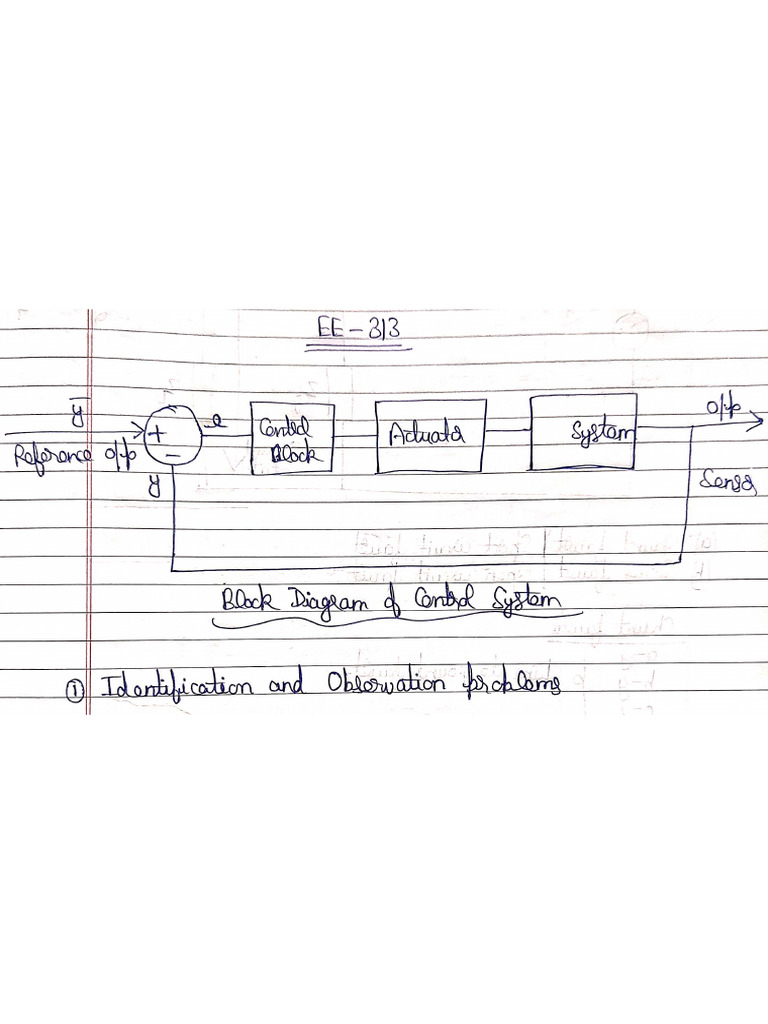 EE-313
ȳ
Reference o/p
+
-
y
e
Control
Block
Actuator
System
o/p
Sensor
Block Diagram of Control System
① Identification and Observation problems